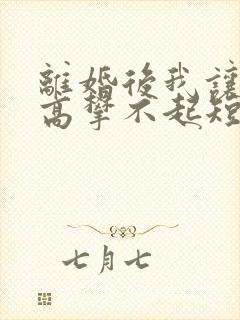 離婚後我讓
高攀不起短
七月七